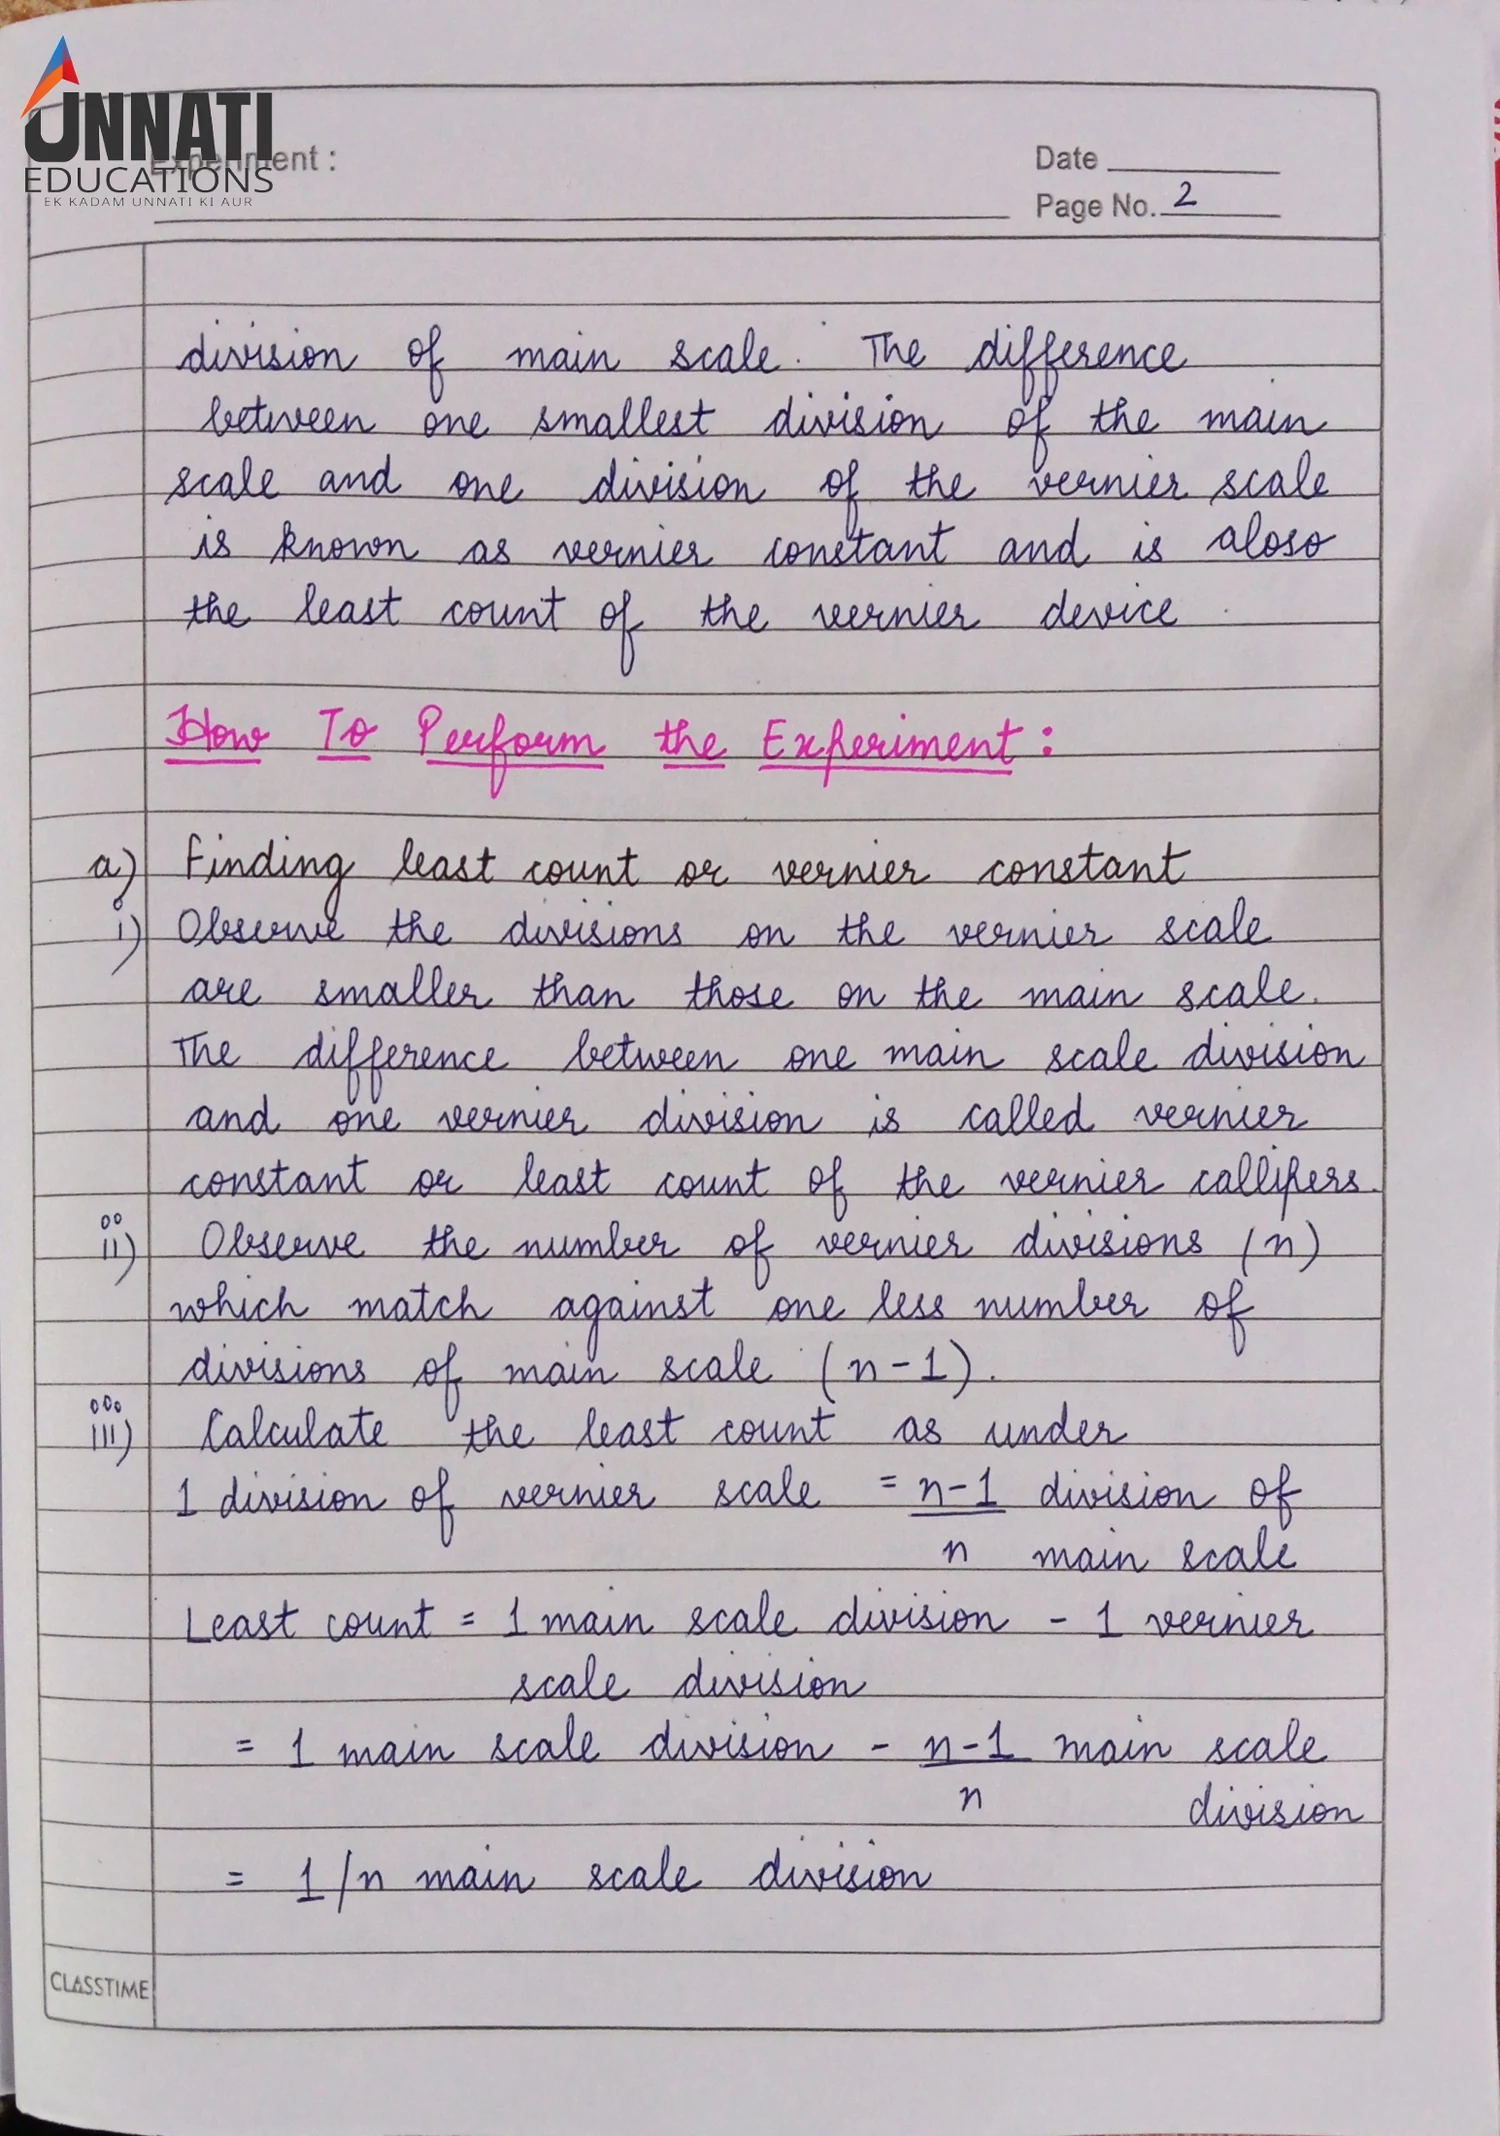 UNNATI
EDUCATIONS
EK KADAM UNNATI KI AUR
Experiment :
Date
Page No. 2
division of main scale. The difference
between one smallest division of the main
scale and one division of the vernier scale
is known as vernier constant and is aloso
the least count of the vernier device
How To Perform the Experiment :
a) Finding least count or vernier constant
i) Observe the divisions on the vernier scale
are smaller than those on the main scale.
The difference between one main scale division
and one vernier division is called vernier
constant or least count of the vernier callipers.
ii) Observe the number of vernier divisions (n)
which match against one less number of
divisions of main scale (n-1).
iii) Calculate the least count as under
1 division of vernier scale = n-1 division of
n main scale
Least count = 1 main scale division - 1 vernier
scale division
= 1 main scale division - n-1 main scale
n division
= 1/n main scale division
CLASSTIME